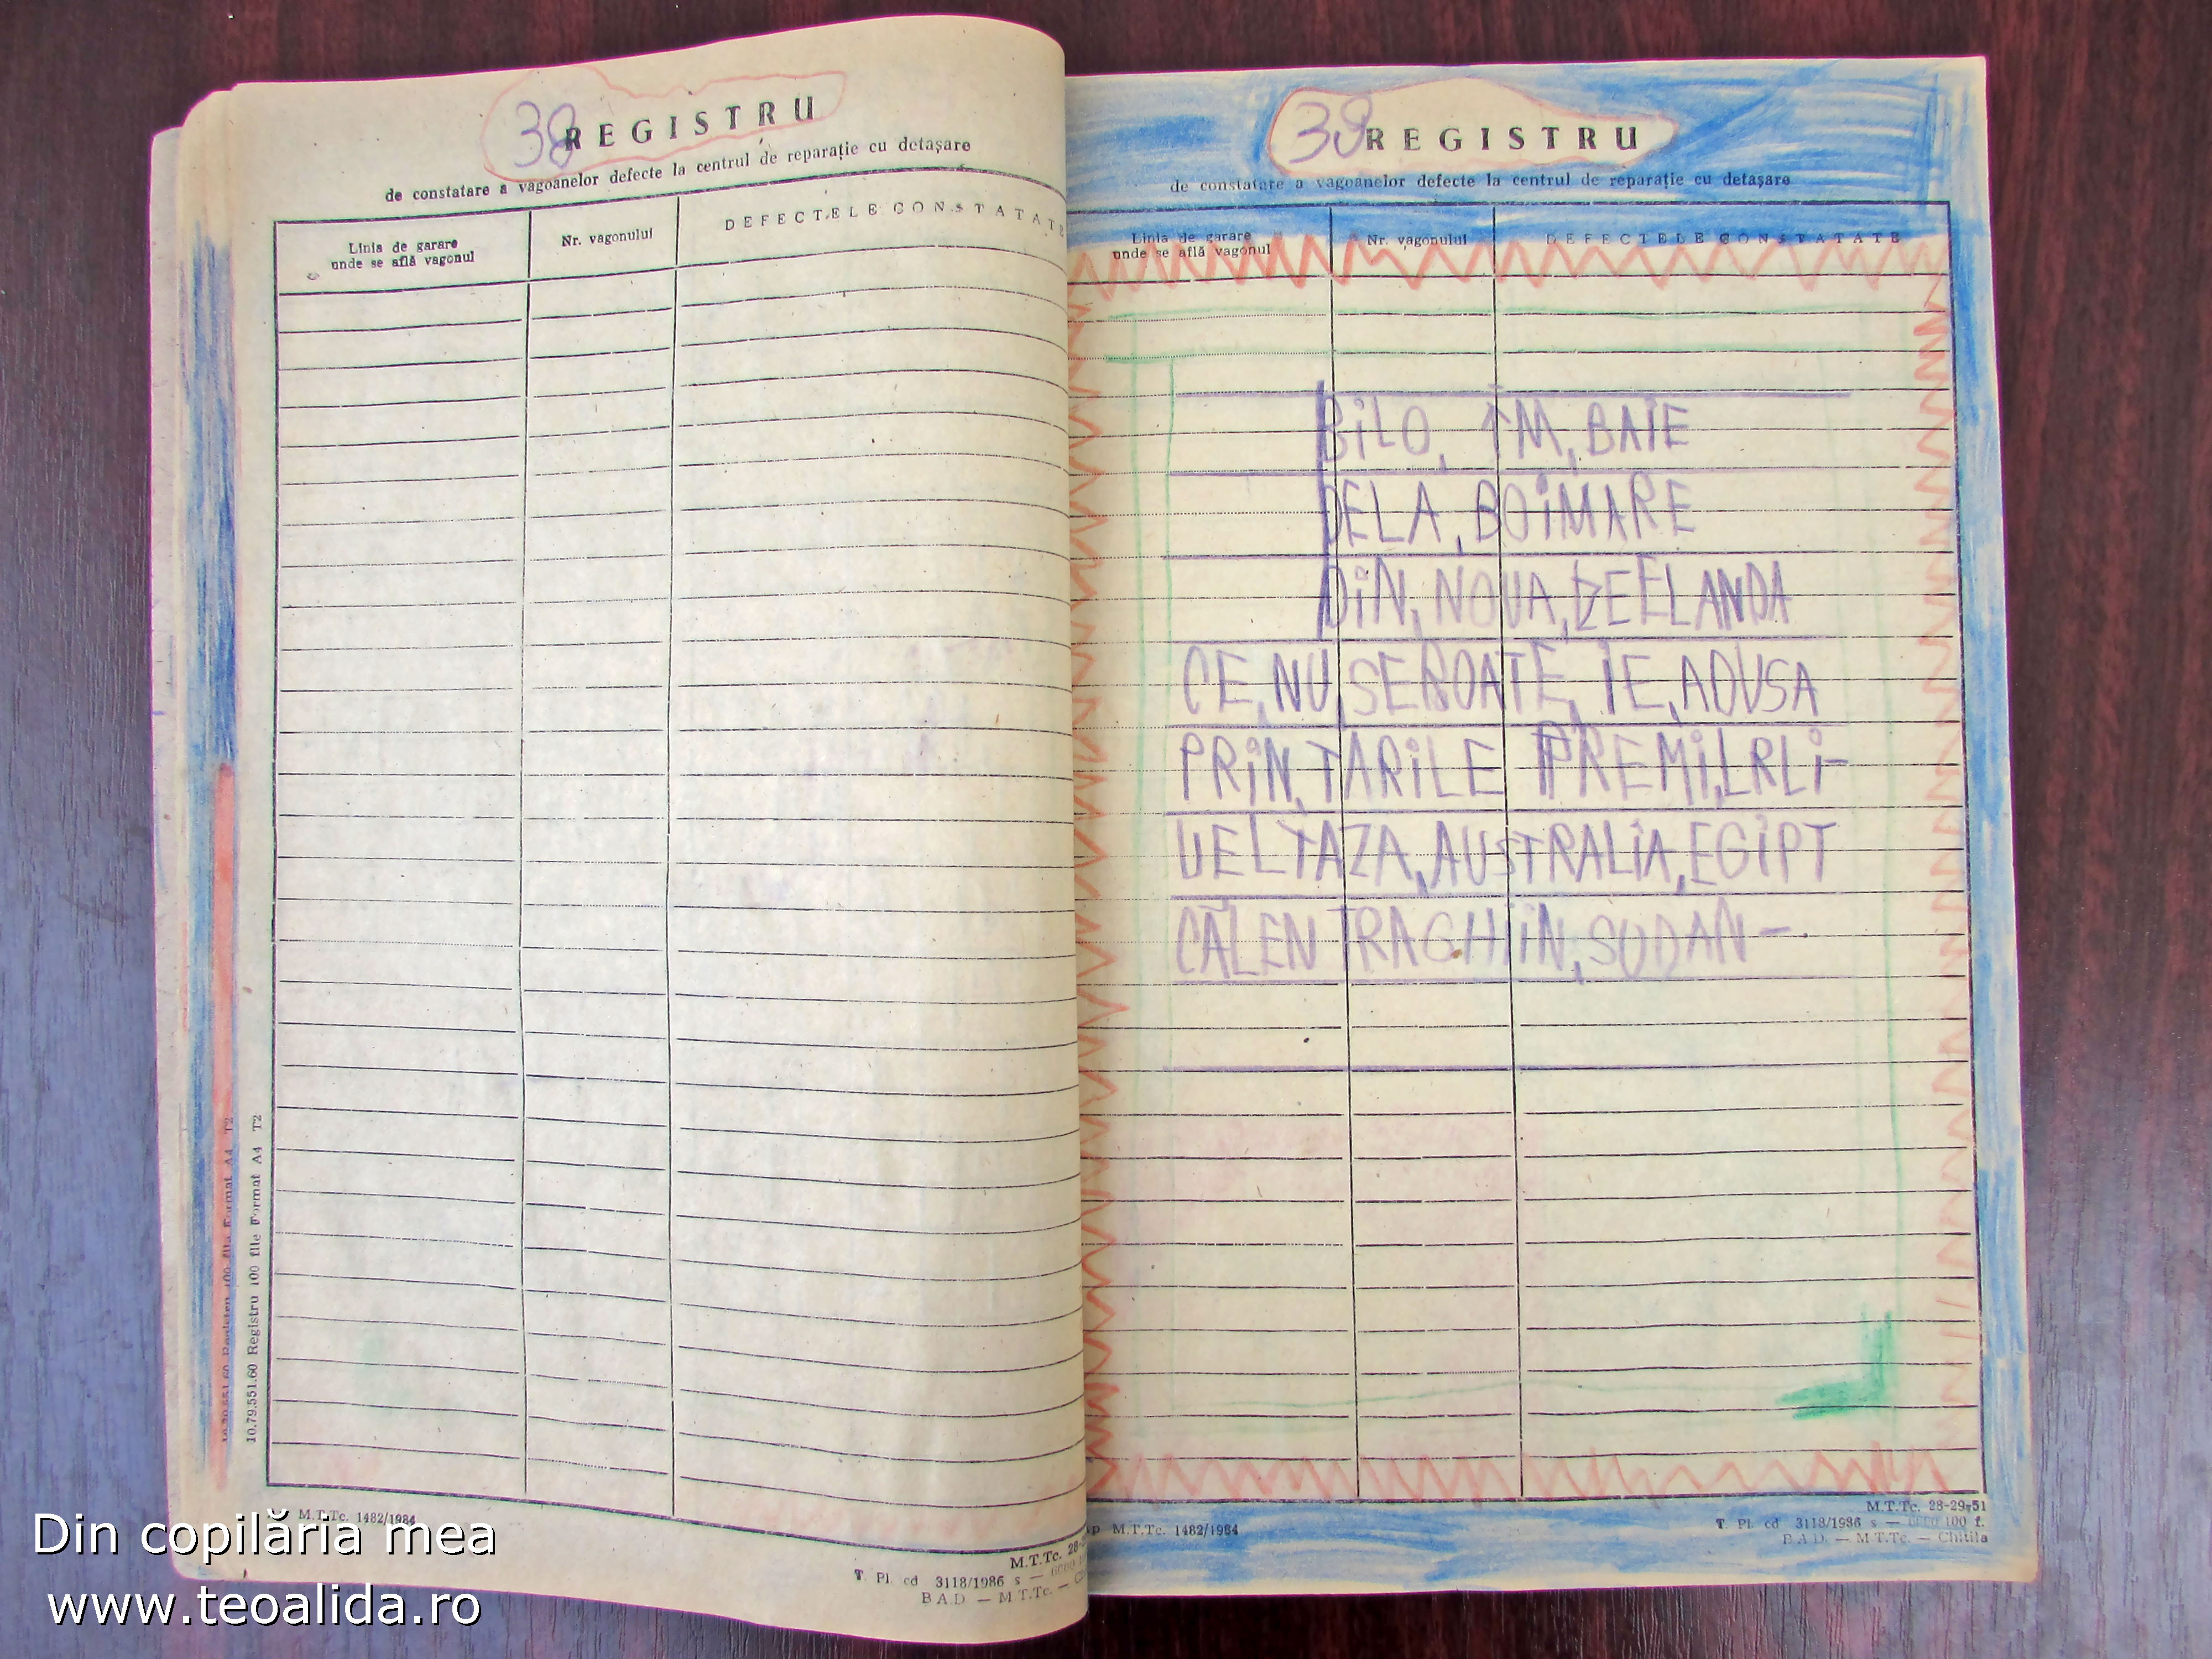 38 REGISTRU
de constatare a vagoanelor defecte la centrul de reparație cu detașare
Linia de garare
unde se află vagonul
Nr. vagonului
DEFECTELE CONSTATATE
10.79.551.60 Registru 100 file Format A4 T2
10.79.551.60 Registru 100 file Format A4 T2
M.T.Tc. 1482/1984
M.T.Tc. 28-
T. Pl. cd 3118/1986 s —
B.A.D — M.T.Tc. —
39 REGISTRU
de constatare a vagoanelor defecte la centrul de reparație cu detașare
Linia de garare
unde se află vagonul
Nr. vagonului
DEFECTELE CONSTATATE
BiLO, ÎM, BAIE
DELA, BOiMARE
DiN, NOUA, ZEELANDA
CE, NU, SEPOATE, IE, ADUSA
PRiN, TARiLE PREMi,LRLi-
UELTAZA, AUSTRALiA, EGiPT
CĂLENTRAGHiiN, SUDAN-.
M.T.Tc. 1482/1984
M.T.Tc. 28-29-51
T. Pl. cd 3118/1986 s — 100 f.
B.A.D. — M.T.Tc. — Chitila
Din copilăria mea
www.teoalida.ro